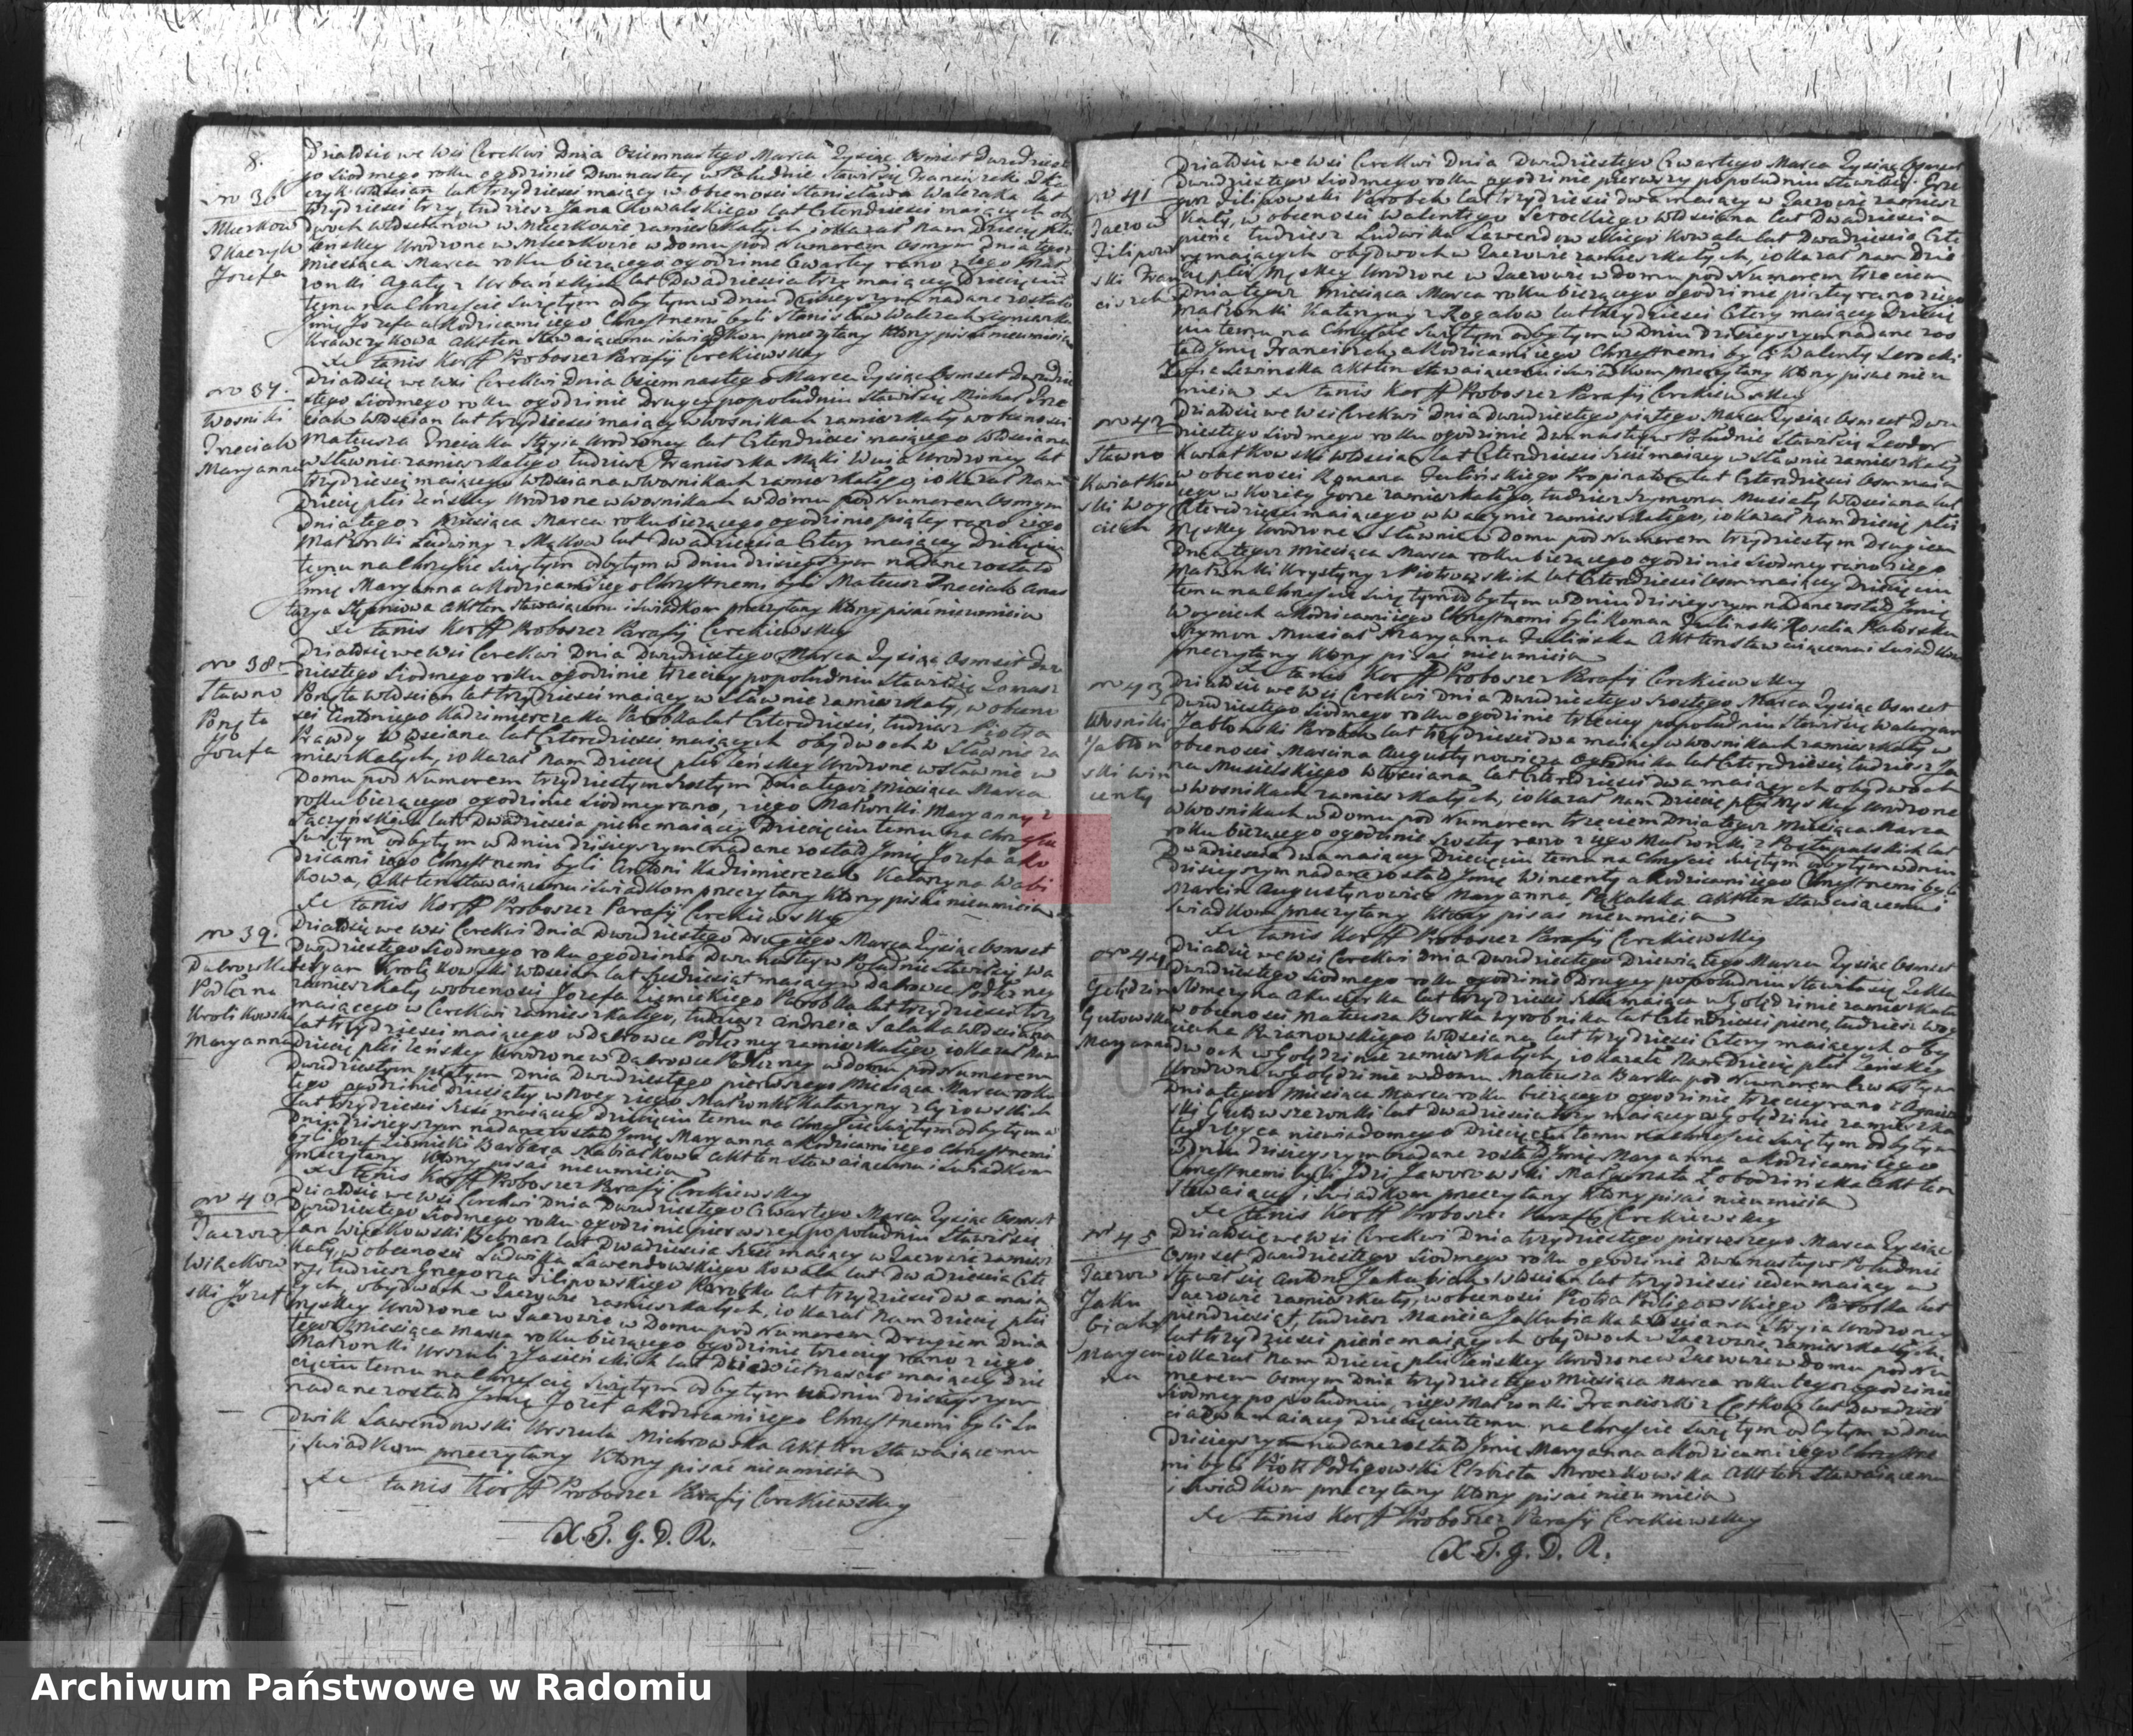 8.
No 36
Mleczkow
Tkaczyk
Jozefa
Działosię we Wsi Cerekwi Dnia Osiemnastego Marca Tysiąc Osmset Dwudzieste
go Siodmego roku ogodzinie Dwunastey w Południe Stawił się Franciszek Tka
czyk Włościan lat trzydzieści maiący w obecności Stanisława Walczaka lat
trzydzieści trzy, tudziesz Jana Kowalskiego lat Czterdzieści maiących oby
dwoch Włościanow w Mleczkowie zamieszkałych, iokazał nam Dziecię płci
Żeńskiey Urodzone w Mleczkowie w domu pod Numerem Osmym Dnia tegoż
miesiąca Marca roku bieżącego ogodzinie Czwartey rano z iego Mał
żonki Agaty z Urbańskich lat Dwadzieścia trzy maiącey Dziecięciu
temu na Chrzcie Swiętym odbytym w Dniu dzisieyszym nadane zostało
Imię Jozefa a Rodzicami iego Chrzestnemi byli Stanisław Walczak
Krawczykowa Akt ten Stawaiącemu i Swiadkom przeczytany Ktorzy pisać nieumieią
X Stanis Korff Proboszcz Parafii Cerekiewskiey
No 37.
Wosniki
Trzeciak
Maryanna
Działosię we Wsi Cerekwi Dnia Osiemnastego Marca Tysiąc Osmset Dwudzie
stego Siodmego roku ogodzinie Drugiey popołudniu Stawił się Michał Trze
ciak Włościan lat trzydzieści maiący w Wosnikach zamieszkały w obecności
Mateusza Trzeciaka Stryia Urodzoney lat Czterdzieści maiącego Włościana
w Sławnie zamieszkałego tudziesz Franciszka Mąki Wuia Urodzoney lat
trzydzieści maiącego Włościana w Wosnikach zamieszkałego, iokazał nam
Dziecię płci Żeńskiey Urodzone w Wosnikach w domu pod Numerem Osmym
Dnia tegoż Miesiąca Marca roku bieżącego ogodzinie piątey rano z iego
Małżonki Ludwiny z Mąkow lat Dwadzieścia Cztery maiącey Dziecięciu
temu na Chrzcie Swiętym odbytym w Dniu dzisieyszym nadane zostało
Imię Maryanna a Rodzicami iego Chrzestnemi byli Mateusz Trzeciak Anas
tazya Stępniowa Akt ten Stawaiącemu i Swiadkom przeczytany Ktorzy pisać nieumieią
X Stanis Korff Proboszcz Parafii Cerekiewskiey
No 38
Sławno
Ponęta
Jozefa
Działosię we Wsi Cerekwi Dnia Dwudziestego Marca Tysiąc Osmset Dwu
dziestego Siodmego roku ogodzinie trzeciey popołudniu Stawił się Tomasz
Ponęta Włościan lat trzydzieści maiący w Sławnie zamieszkały, w obecno
ści Antoniego Kazimierczaka Parobka lat Czterdzieści, tudziesz Piotra
Prawdy Włościana lat Czterdzieści maiących obydwoch w Sławnie za
mieszkałych, iokazał nam Dziecię płci Żeńskiey Urodzone w Sławnie w
Domu pod Numerem trzydziestym Szostym Dnia tegoż Miesiąca Marca
roku bieżącego ogodzinie Siodmey rano, z iego Małżonki Maryanny z
lat Dwadzieścia pięć maiącey Dziecięciu temu na Chrzcie
Swiętym odbytym w Dniu dzisieyszym nadane zostało Imię Jozefa a Ro
dzicami iego Chrzestnemi byli Antoni Kazimierczak Katarzyna Wabi
kowa, Akt ten Stawaiącemu i Swiadkom przeczytany Ktorzy pisać nieumieią
X Stanis Korff Proboszcz Parafii Cerekiewskiey
No 39.
Dabrowka
Podlezna
Krolikowska
Maryanna
Działosię we Wsi Cerekwi Dnia Dwudziestego Drugiego Marca Tysiąc Osmset
Dwudziestego Siodmego roku ogodzinie Dwunastey w Południe Stawił się Wa
Krolikowski Włościan lat maiący w Dabrowce Podlezney
zamieszkały w obecności Jozefa Parobka lat trzydzieści trzy
maiącego w Cerekwi zamieszkałego, tudziesz Andrzeia Sałaka Włościana
lat trzydzieści maiącego w Dąbrowce Podlezney zamieszkałego, iokazał nam
dziecię płci Żeńskiey Urodzone w Dabrowce Podlezney w domu pod Numerem
Dwudziestym piątym Dnia Dwudziestego pierwszego Miesiąca Marca roku
tego ogodzinie dziesiątey w Nocy z iego Małżonki Katarzyny z
lat trzydzieści Szesc maiącey Dziecięciu temu na Chrzcie Swiętym odbytym w
Dniu dzisieyszym nadane zostało Imię Maryanna a Rodzicami iego Chrzestnemi
byli Jozef Barbara Akt ten Stawaiącemu i Swiadkom
przeczytany Ktorzy pisać nieumieią
X Stanis Korff Proboszcz Parafii Cerekiewskiey
No 40
Jaszowice
Więckow
ski Jozef
Działosię we Wsi Cerekwi Dnia Dwudziestego Czwartego Marca Tysiąc Osmset
Dwudziestego Siodmego roku ogodzinie pierwszey popołudniu Stawił się
Jan Więckowski Bednarz lat Dwadzieścia Szesc maiący w zamiesz
kały, w obecności Ludwika Lawendowskiego Kowala lat Dwadzieścia Czte
ry, tudziesz Grzegorza Filipowskiego Parobka lat trzydzieści dwa maią
cych, obydwoch w zamieszkałych, iokazał nam Dziecię płci
Męskiey Urodzone w w Domu pod Numerem Drugiem Dnia
tegoż Miesiąca Marca roku bieżącego ogodzinie trzeciey rano z iego
Małżonki Urszuli z Jasieńskich lat Dziewiętnaście maiącey Dzie
cięciu temu na Chrzcie Swiętym odbytym w dniu dzisieyszym
nadane zostało Imię Jozef a Rodzicami iego Chrzestnemi byli Lu
dwik Lawendowski Urszula Michrowska Akt ten Stawaiącemu
i Swiadkom przeczytany Ktorzy pisać nieumieią
X Stanis Korff Proboszcz Parafii Cerekiewskiey
X. J. G. D. R.
No 41
Filipow
ski Fran
ciszek
Działosię we Wsi Cerekwi Dnia Dwudziestego Czwartego Marca Tysiąc Osmset
Dwudziestego Siodmego roku ogodzinie pierwszy popołudniu Stawił się Grze
gorz Filipowski Parobek lat trzydzieści dwa maiący w zamiesz
kały, w obecności Walentego Serockiego Włościana lat Dwadzieścia
pięć tudziesz Ludwika Lawendowskiego Kowala lat Dwadzieścia Czte
ry maiących obydwoch w zamieszkałych, iokazał nam Dzie
cię płci Męskiey Urodzone w w domu pod Numerem trzeciem
Dnia tegoż Miesiąca Marca roku bieżącego ogodzinie piątey rano z iego
Małżonki Katarzyny z Rogalow lat trzydzieści Cztery maiącey Dziecię
ciu temu na Chrzcie Swiętym odbytym w Dniu dzisieyszym nadane zos
tało Imię Franciszek a Rodzicami iego Chrzestnemi byli Walenty Serocki
Zofia Lewinska Akt ten Stawaiącemu i Swiadkom przeczytany Ktorzy pisać nieu
mieią X Stanis Korff Proboszcz Parafii Cerekiewskiey
No 42
Sławno
Kwiatkow
ski Woy
ciech
Działosię we Wsi Cerekwi Dnia Dwudziestego piątego Marca Tysiąc Osmset Dwu
dziestego Siodmego roku ogodzinie Dwunastey w Południe Stawił się Teodor
Kwiatkowski Włościan lat Czterdzieści Szesc maiący w Sławnie zamieszkały
w obecności Romana Zielińskiego Propinatora lat Czterdzieści Osm maią
cego w Koziey Gorze zamieszkałego, tudziesz Szymona Musiała Włościana lat
Czterdzieści maiącego w Wacynie zamieszkałego, iokazał nam dziecię płci
Męskiey Urodzone w Sławnie w Domu pod Numerem trzydziestym Drugiem
Dnia tegoż Miesiąca Marca roku bieżącego ogodzinie Siodmey rano z iego
Małżonki Krystyny z Piotrowskich lat Czterdzieści Osm maiącey Dziecięciu
temu na Chrzcie Swiętym odbytym w Dniu dzisieyszym nadane zostało Imię
Woyciech a Rodzicami iego Chrzestnemi byli Roman Zieliński Rozalia
Szymon Musiał Maryanna Zielińska Akt ten Stawaiącemu i Swiadkom
przeczytany Ktorzy pisać nieumieią
X Stanis Korff Proboszcz Parafii Cerekiewskiey
No 43
Wosniki
Jabłon
ski Win
centy
Działosię we Wsi Cerekwi Dnia Dwudziestego Szostego Marca Tysiąc Osmset
Dwudziestego Siodmego roku ogodzinie trzeciey popołudniu Stawił się Waleryan
Jabłonski Parobek lat trzydzieści dwa maiący w Wosnikach zamieszkały w
obecności Marcina Augustynowicza Ogrodnika lat Czterdzieści tudziesz Ja
na Musielskiego Włościana lat Czterdzieści dwa maiących obydwoch
w Wosnikach zamieszkałych, iokazał nam Dziecię płci Męskiey Urodzone
w Wosnikach w Domu pod Numerem trzeciem Dnia tegoż Miesiąca Marca
roku bieżącego ogodzinie Szostey rano z iego Małżonki z Postupalskich lat
Dwadzieścia dwa maiącey Dziecięciu temu na Chrzcie Swiętym odbytym w dniu
dzisieyszym nadane zostało Imię Wincenty a Rodzicami iego Chrzestnemi byli
Marcin Augustynowicz Maryanna Pękalska Akt ten Stawaiącemu i
Swiadkom przeczytany Ktorzy pisać nieumieią
X Stanis Korff Proboszcz Parafii Cerekiewskiey
No 44
Golędzin
Gutowska
Maryanna
Działosię we Wsi Cerekwi Dnia Dwudziestego Dziewiątego Marca Tysiąc Osmset
Dwudziestego Siodmego roku ogodzinie Drugiey popołudniu Stawiła się Tekla
Akuszerka lat trzydzieści Szesc maiąca w Golędzinie zamieszkała
w obecności Mateusza Burka wyrobnika lat Czterdzieści pięć, tudziesz Woy
ciecha Włościana lat trzydzieści Cztery maiących oby
dwoch w Golędzinie zamieszkałych, iokazała nam Dziecię płci Żeńskiey
Urodzone w Golędzinie w domu Mateusza Burka pod Numerem Czwartym
Dnia tegoż Miesiąca Marca roku bieżącego ogodzinie trzeciey rano z Agniesz
ki lat Dwadzieścia trzy maiącey w Golędzinie zamieszka
łey z Oyca niewiadomego Dziecięciu temu na Chrzcie Swiętym odbytym
w Dniu dzisieyszym nadane zostało Imię Maryanna a Rodzicami iego
Chrzestnemi byli Idzi Jaworowski Małgorzata Łobodzińska Akt ten
Stawaiącey i Swiadkom przeczytany Ktorzy pisać nieumieią
X Stanis Korff Proboszcz Parafii Cerekiewskiey
No 45
Jaku
biak
Maryan
na
Działosię we Wsi Cerekwi Dnia trzydziestego pierwszego Marca Tysiąc
Osmset Dwudziestego Siodmego roku ogodzinie Dwunastey w Południe
Stawił się Antoni Jakubiak Włościan lat trzydzieści ieden maiący w
zamieszkały, w obecności Piotra Podligowskiego Parobka lat
pięćdziesiąt, tudziesz Macieia Jakubiaka Włościana Stryia Urodzoney
lat trzydzieści pięć maiących obydwoch w zamieszkałych,
iokazał nam Dziecię płci Żeńskiey Urodzone w w domu pod Nu
merem Osmym Dnia trzydziestego Miesiąca Marca roku tegoż ogodzinie
Siodmey popołudniu, z iego Małżonki Franciszki z lat Dwadzieś
cia dwa maiącey Dziecięciu temu na Chrzcie Swiętym odbytym w dniu
dzisieyszym nadane zostało Imię Maryanna a Rodzicami iego Chrzestne
mi byli Piotr Podligowski Elzbieta Mroczkowska Akt ten Stawaiącemu
i Swiadkom przeczytany Ktorzy pisać nieumieią
X Stanis Korff Proboszcz Parafii Cerekiewskiey
X. J. G. D. R.
Archiwum Państwowe w Radomiu